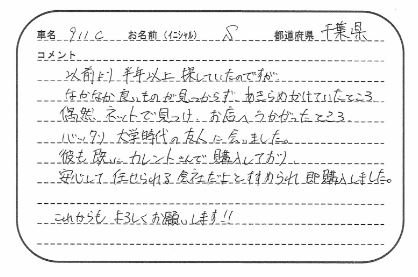 車名 911C お名前（イニシャル） S 都道府県 千葉県
コメント
以前より半年以上探していたのですが
なかなか良いものが見つからず、あきらめかけていたところ
偶然、ネットで見つけ、お店へうかがったところ
バッタリ大学時代の友人に会いました。
彼も既にカレントさんで購入しており
安心して任せられる会社だよとすすめられ即購入しました。
これからもよろしくお願いします!!